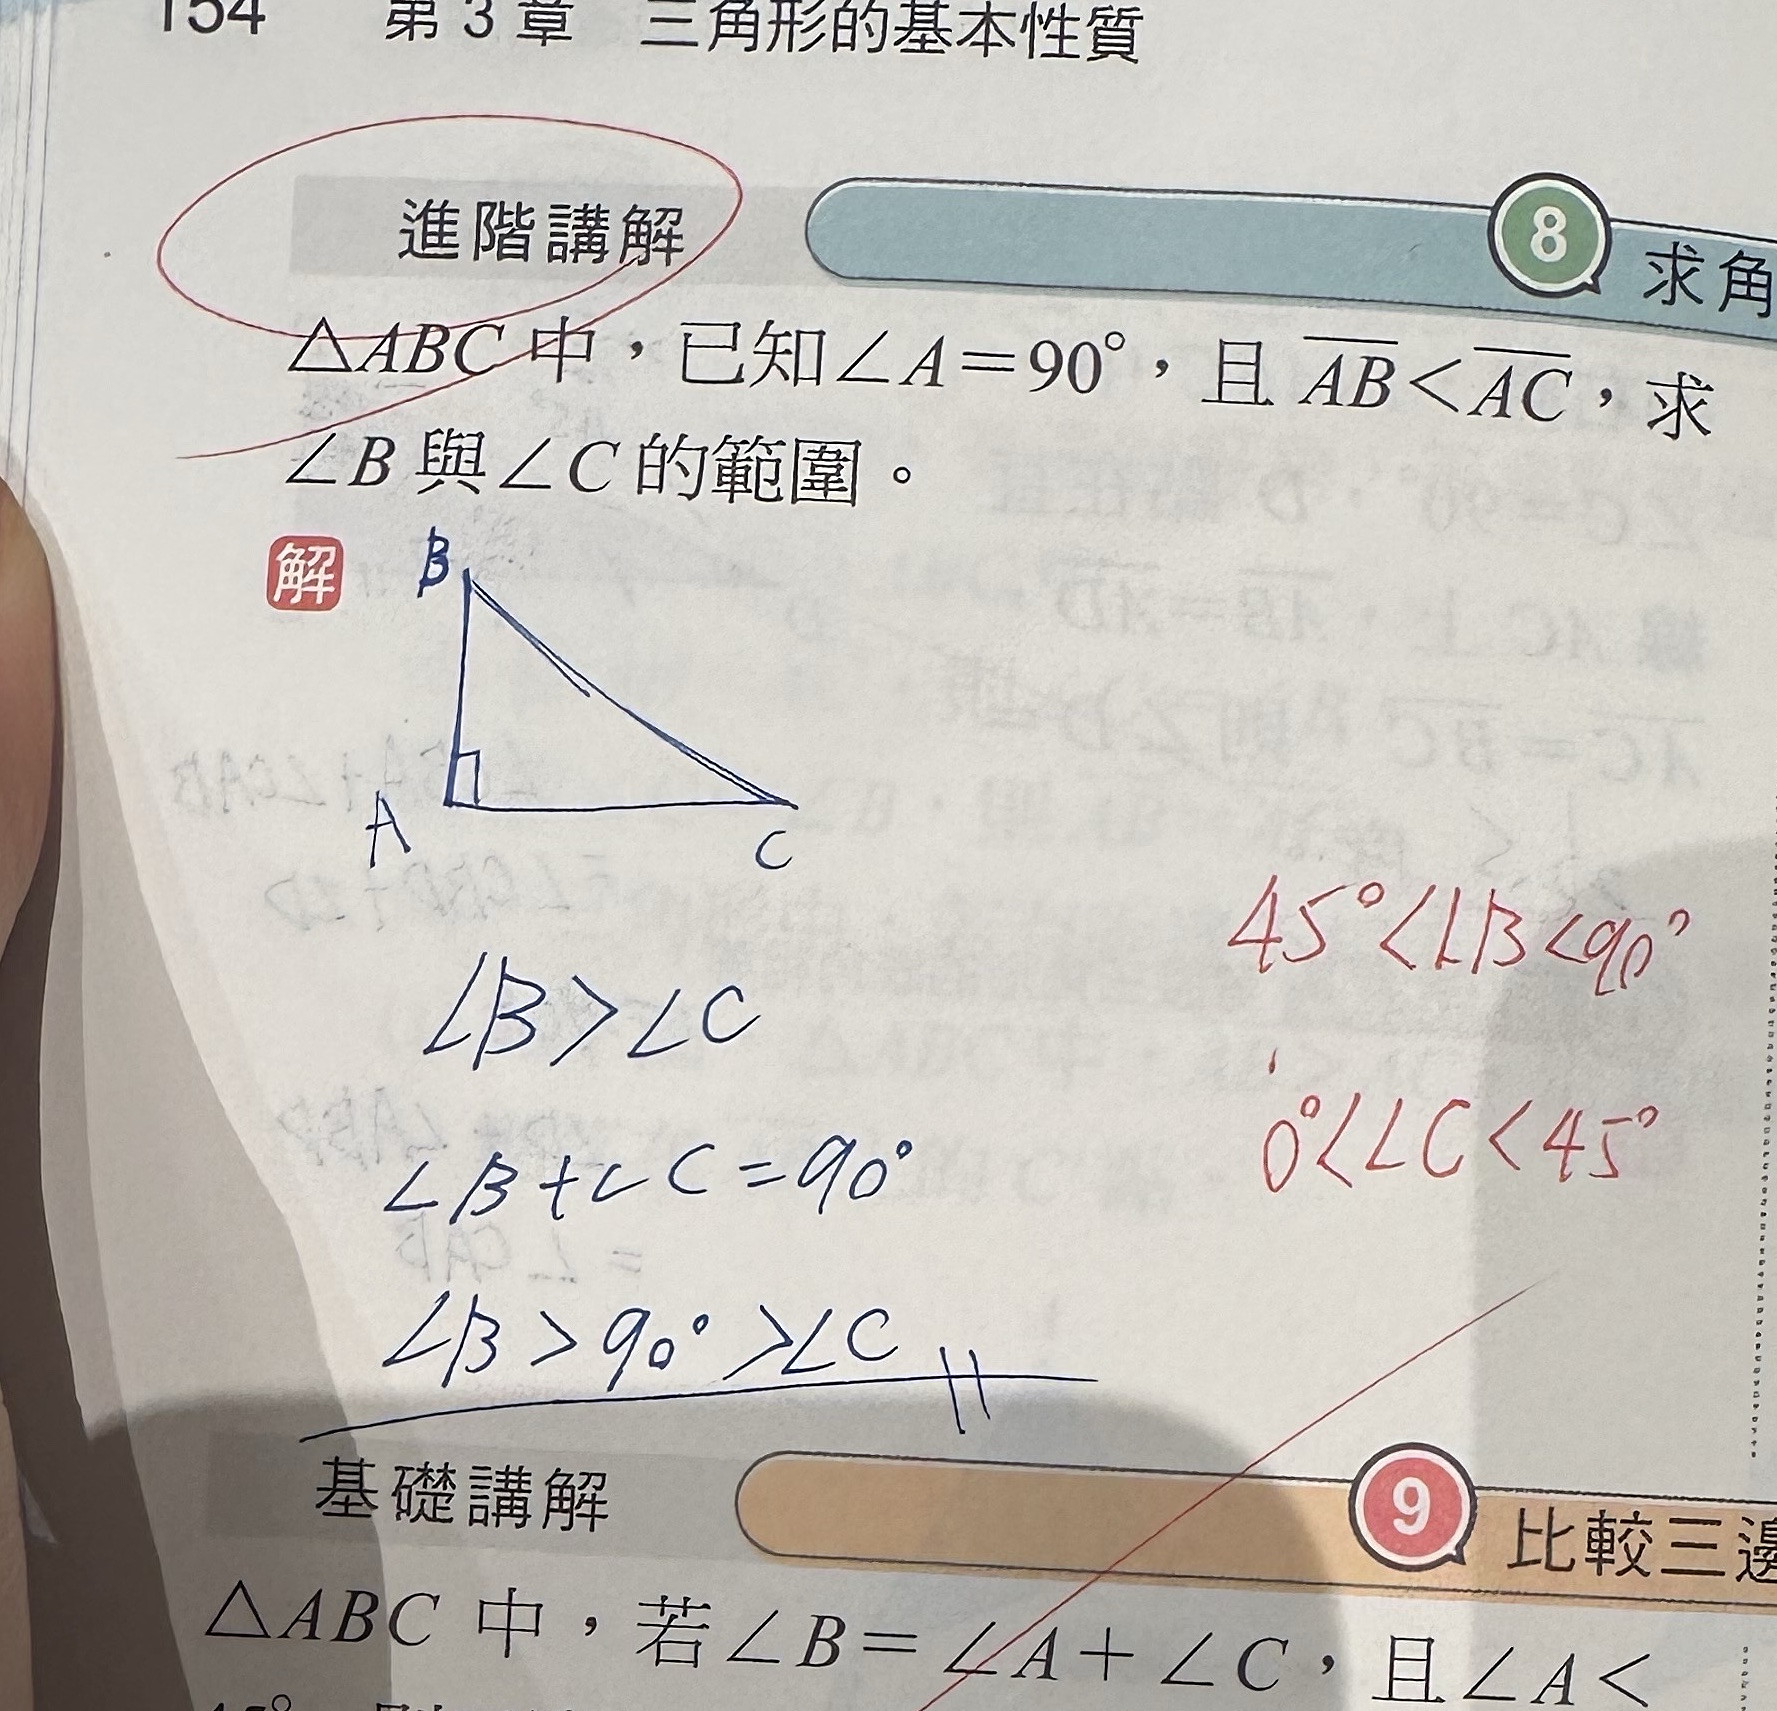 154 第3章 三角形的基本性質
進階講解 8 求角
△ABC中,已知∠A=90°,且 AB<AC,求
∠B與∠C的範圍。
解
B
A
C
45°<∠B<90°
∠B>∠C
0°<∠C<45°
∠B+∠C=90°
∠B>90°>∠C
基礎講解 9 比較三邊
△ABC中,若∠B=∠A+∠C,且∠A<